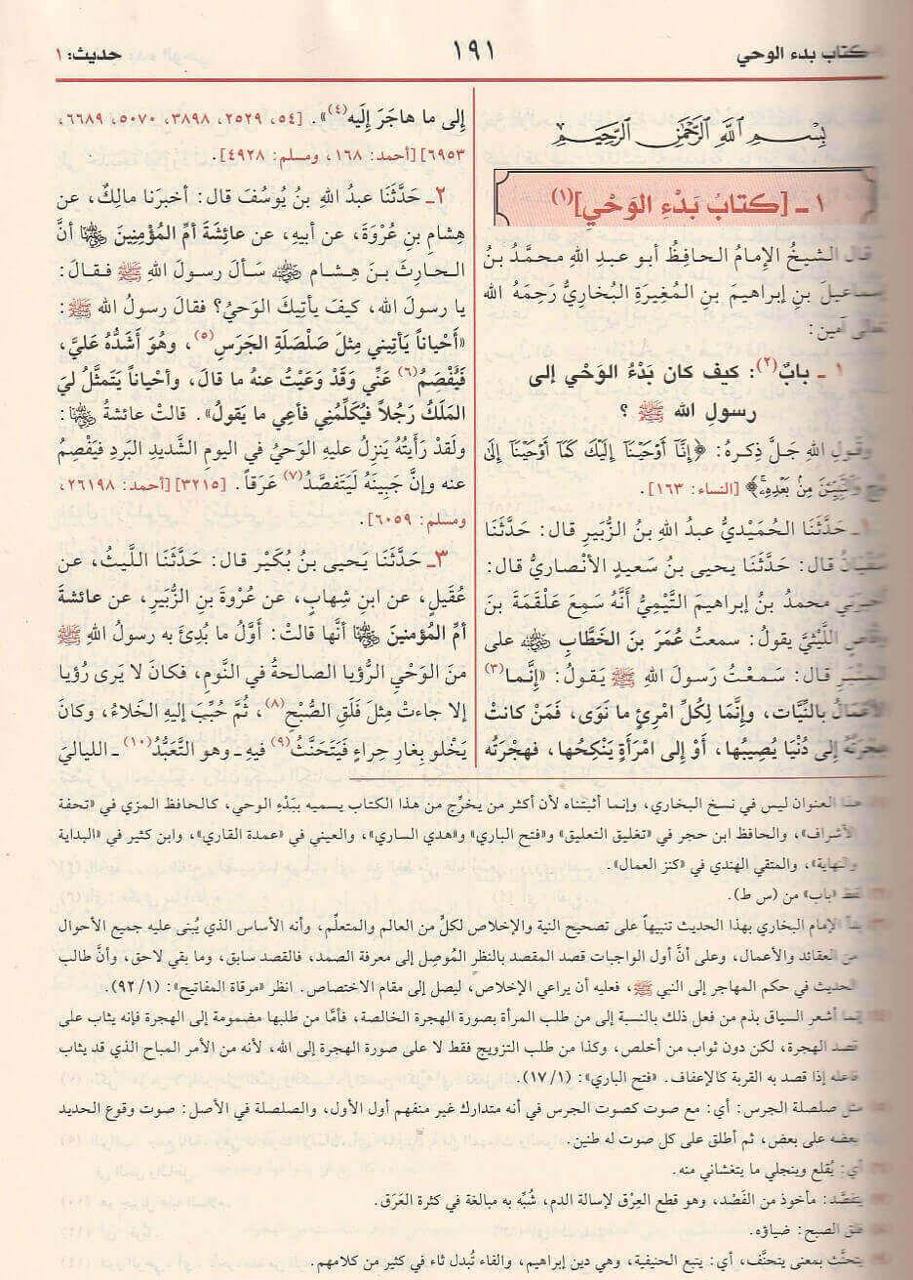 كتاب بدء الوحي
١٩١
حديث: ١
بِسْمِ اللَّهِ الرَّحْمَنِ الرَّحِيمِ
١ ـ [كتابُ بَدْءِ الوَحْيِ](١)
قال الشيخُ الإمامُ الحافظُ أبو عبدِ اللهِ محمَّدُ بنُ
إسماعيلَ بنِ إبراهيمَ بنِ المُغِيرَةِ البُخاريُّ رَحِمَهُ الله
تعالى آمين:
١ ـ بابٌ(٢): كيف كان بَدْءُ الوَحْي إلى
رسولِ الله ﷺ ؟
وقولِ اللهِ جَلَّ ذِكرهُ: ﴿إِنَّا أَوْحَيْنَا إِلَيْكَ كَمَا أَوْحَيْنَا إِلَى
نُوحٍ وَالنَّبِيِّينَ مِنْ بَعْدِهِ﴾ [النساء: ١٦٣].
١ـ حَدَّثَنَا الحُمَيْدِيُّ عبدُ اللهِ بنُ الزُّبَيرِ قال: حَدَّثَنَا
سُفْيَانُ قال: حَدَّثَنَا يحيى بنُ سَعيدٍ الأنْصاريُّ قال:
أخبرَني محمدُ بنُ إبراهيمَ التَّيْمِيُّ أنَّهُ سَمِعَ عَلْقَمَةَ بنَ
وَقَّاصٍ اللَّيْثيَّ يقولُ: سمعتُ عُمَرَ بنَ الخَطَّابِ ﷺ على
المِنْبَرِ قال: سَمَعْتُ رَسولَ الله ﷺ يَقولُ: «إنَّما(٣)
الأعمَالُ بالنِّيَّات، وإنَّمَا لِكُلِّ امْرِئٍ ما نَوَى، فَمَنْ كانتْ
هِجْرَتُهُ إلى دُنْيَا يُصِيبُها، أَوْ إلى امْرَأَةٍ يَنْكِحُها، فهِجْرَتُه
إلى ما هاجَرَ إليه(٤)». [٥٤، ٢٥٢٩، ٣٨٩٨، ٥٠٧٠، ٦٦٨٩،
٦٩٥٣] [أحمد: ١٦٨، ومسلم: ٤٩٢٨].
٢ـ حَدَّثَنَا عبدُ اللهِ بنُ يُوسُفَ قال: أخبرَنا مالِكٌ، عن
هِشامِ بنِ عُرْوَةَ، عن أبيهِ، عن عائِشَةَ أمِّ المُؤْمِنِينَ ﷺ أنَّ
الحارِثَ بنَ هِشام ﷺ سَألَ رسولَ اللهِ ﷺ فقالَ:
يا رسولَ الله، كيفَ يأتيكَ الوَحيُ؟ فقالَ رسولُ الله ﷺ:
«أَحْياناً يَأتِيني مِثلَ صَلْصَلَةِ الجَرَسِ(٥)، وهوَ أشَدُّهُ عَلَيَّ،
فَيُفْصَمُ(٦) عَنِّي وَقَدْ وَعَيْتُ عنهُ ما قالَ، وأحياناً يَتمثَّلُ ليَ
المَلَكُ رَجُلاً فيُكَلِّمُنِي فأعِي ما يَقولُ». قالتْ عائشةُ ﷺ:
ولَقَدْ رَأيتُهُ يَنزِلُ عليهِ الوَحيُ في اليومِ الشَّديدِ البَردِ فيَفْصِمُ
عنه وإنَّ جَبِينَهُ لَيَتَفصَّدُ(٧) عَرَقاً. [٣٢١٥] [أحمد: ٢٦١٩٨،
ومسلم: ٦٠٥٩].
٣ـ حَدَّثَنَا يَحيى بنُ بُكَيْر قال: حَدَّثَنَا اللَّيثُ، عن
عُقَيلٍ، عن ابنِ شِهابٍ، عن عُرْوَةَ بنِ الزُّبَيرِ، عن عائشةَ
أمِّ المُؤمنينَ ﷺ أنَّها قالتْ: أوَّلُ ما بُدِئَ به رسولُ الله ﷺ
منَ الوَحْيِ الرُّؤيا الصالحةُ في النَّومِ، فكانَ لا يَرى رُؤيا
إلا جاءتْ مِثلَ فَلَقِ الصُّبْحِ(٨)، ثُمَّ حُبِّبَ إليهِ الخَلاءُ، وكانَ
يَخْلو بغارِ حِراءٍ فَيَتَحَنَّثُ(٩) فيهِ ـ وهو التَّعَبُّدُ(١٠) ـ الليالِيَ
هذا العنوان ليس في نسخ البخاري، وإنما أثبتناه لأن أكثر من يخرِّج من هذا الكتاب يسميه ببَدْءِ الوحي، كالحافظ المزي في «تحفة
الأشراف»، والحافظ ابن حجر في «تغليق التعليق» و«فتح الباري» و«هدي الساري»، والعيني في «عمدة القاري»، وابن كثير في «البداية
والنهاية»، والمتقي الهندي في «كنز العمال».
لفظ «باب» من (س ط).
بدأ الإمام البخاري بهذا الحديث تنبيهاً على تصحيح النية والإخلاص لكلِّ من العالم والمتعلِّم، وأنه الأساس الذي يُبنى عليه جميع الأحوال
من العقائد والأعمال، وعلى أنَّ أول الواجبات قصد المقصد بالنظر المُوصِل إلى معرفة الصمد، فالقصد سابق، وما بقي لاحق، وأنَّ طالب
الحديث في حكم المهاجر إلى النبي ﷺ، فعليه أن يراعي الإخلاص، ليصل إلى مقام الاختصاص. انظر «مرقاة المفاتيح»: (١/ ٩٢).
إنما أشعر السياق بذم من فعل ذلك بالنسبة إلى من طلب المرأة بصورة الهجرة الخالصة، فأمَّا من طلبها مضمومة إلى الهجرة فإنه يثاب على
قصد الهجرة، لكن دون ثواب من أخلص، وكذا من طلب التزويج فقط لا على صورة الهجرة إلى الله، لأنه من الأمر المباح الذي قد يثاب
فاعله إذا قصد به القربة كالإعفاف. «فتح الباري»: (١/ ١٧).
مثل صلصلة الجرس: أي: مع صوت كصوت الجرس في أنه متدارك غير منفهم أول الأول، والصلصلة في الأصل: صوت وقوع الحديد
بعضه على بعض، ثم أطلق على كل صوت له طنين.
أي: يُقلع وينجلي ما يتغشاني منه.
يتفصَّد: مأخوذ من الفَصْد، وهو قطع العِرْق لإسالة الدم، شُبِّه به مبالغة في كثرة العَرَق.
فلق الصبح: ضياؤه.
يتحنَّث بمعنى يتحنَّف، أي: يتبع الحنيفية، وهي دين إبراهيم، والفاء تُبدل ثاء في كثير من كلامهم.